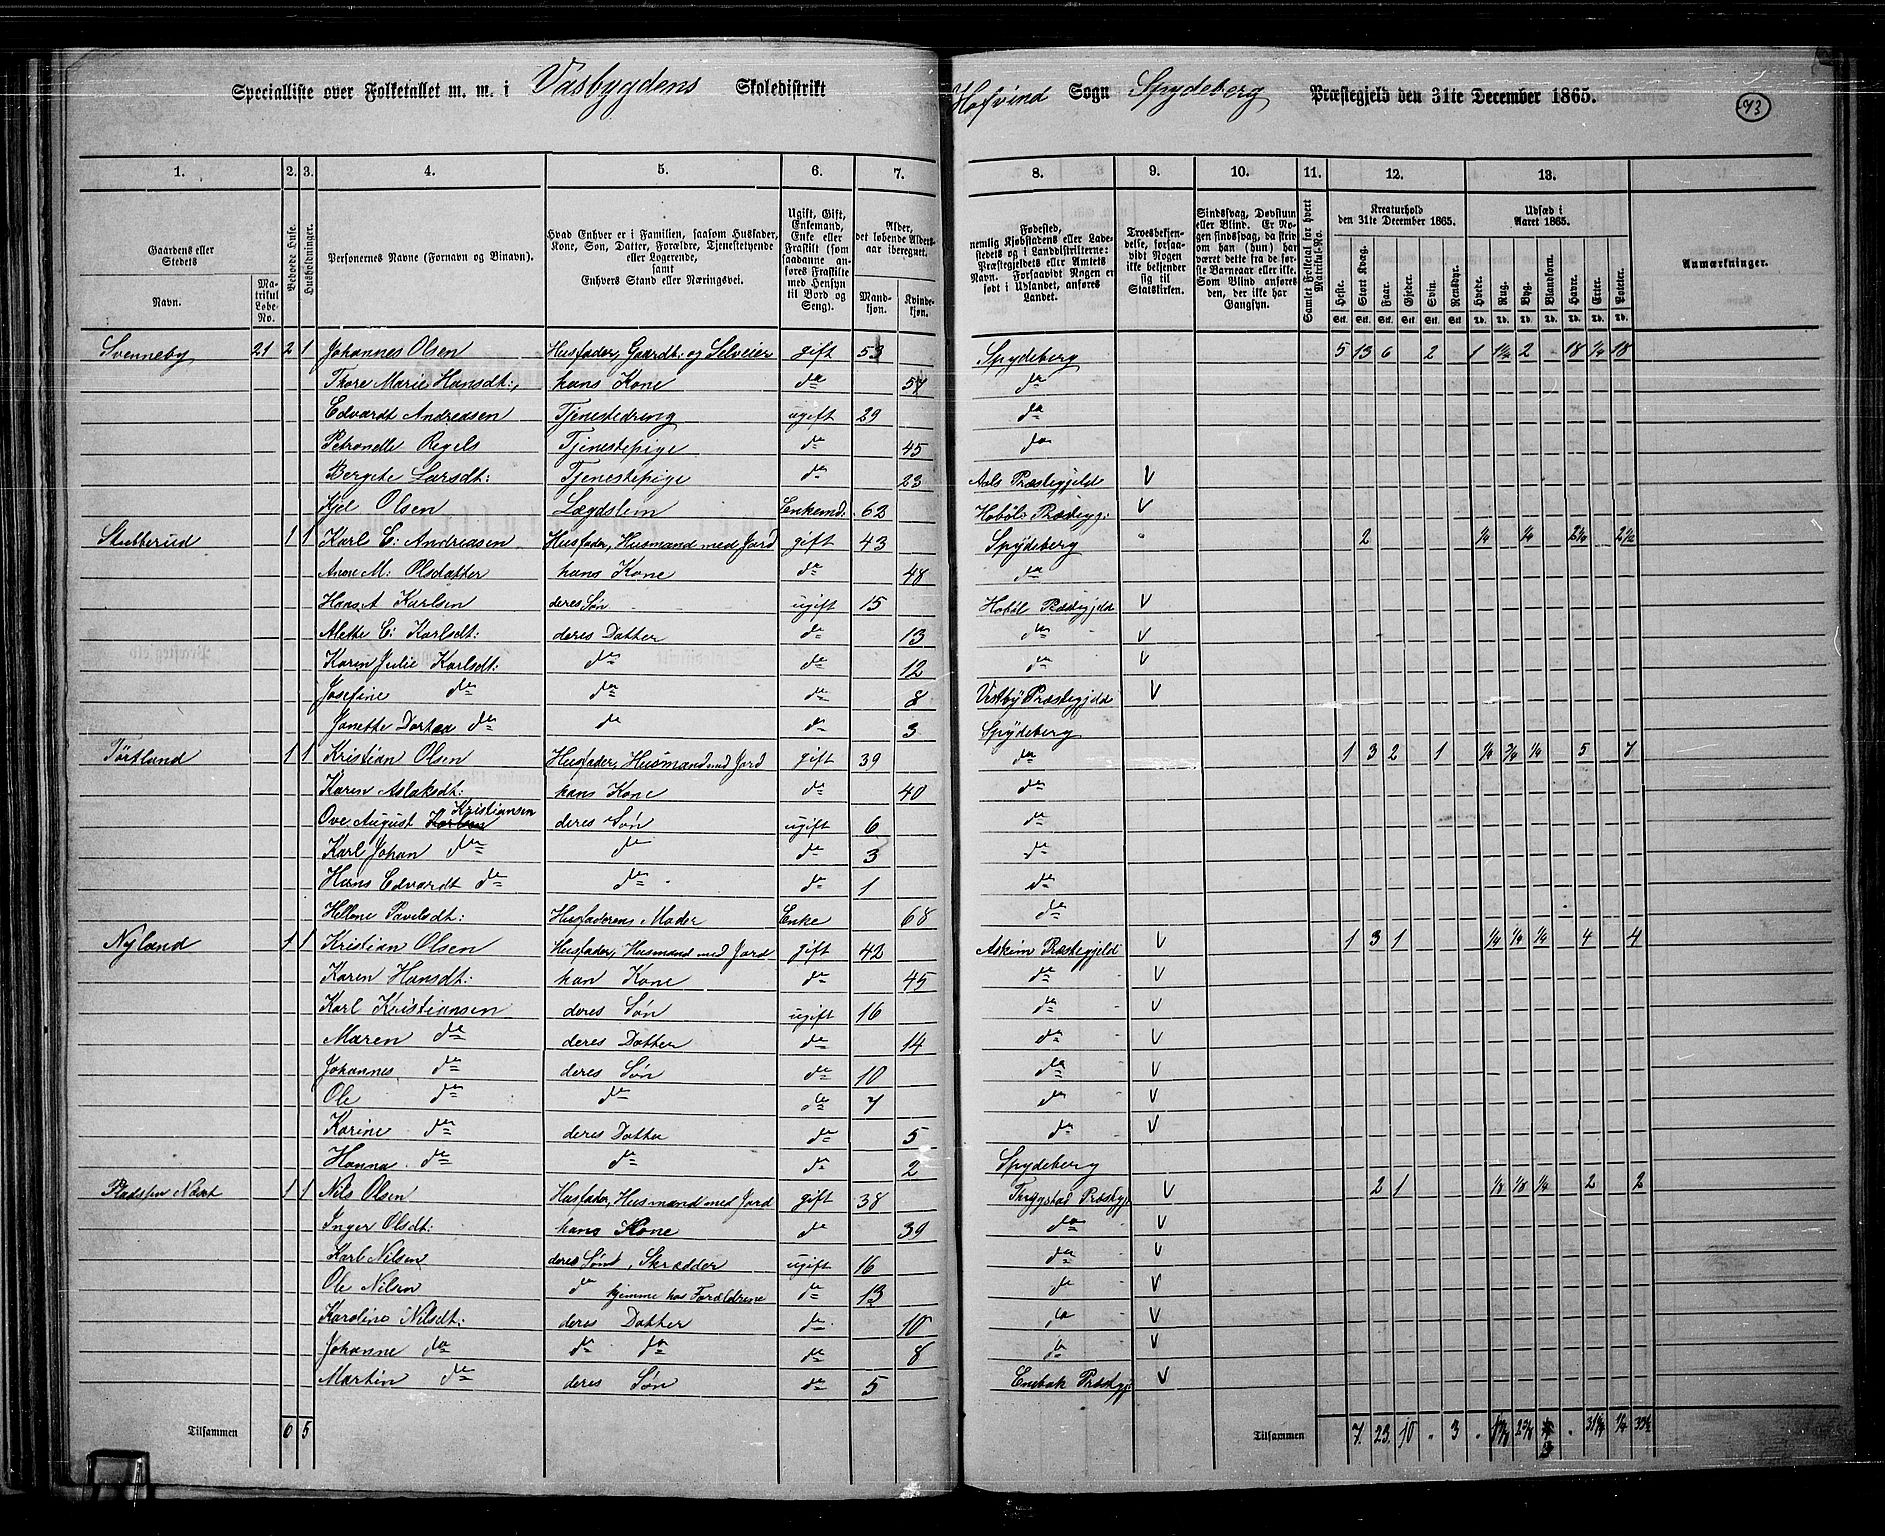 Specialliste over Folketallet m. m. i Vasbygdens Skoledistrikt Hofvind Sogn Spydeberg Præstegjeld den 31te December 1865. 73
1. 2. 3. 4. 5. 6. 7. 8. 9. 10. 11. 12. 13.
Gaardens eller Stedets Navn. Matrikul Løbe-No. Beboede Huse. Husholdninger. Personernes Navne (Fornavn og Binavn). Hvad Enhver er i Familien, saasom Husfader, Kone, Søn, Datter, Forældre, Tjenestetyende eller Logerende, samt Enhvers Stand eller Næringsvei. Ugift, Gift, Enkemand, Enke eller Fraskilt (som saadanne anføres Fraskilte med Hensyn til Bord og Seng). Alder, det løbende Aldersaar iberegnet. Mandkjøn. Kvindekjøn. Fødested, nemlig Kjøbstadens eller Ladestedets og i Landdistrikterne: Præstegjeldets eller Amtets Navn. Forsaavidt Nogen er født i Udlandet, anføres Landet. Troesbekjendelse, forsaavidt Nogen ikke bekjender sig til Statskirken. Sindssvag, Døvstum eller Blind. Er Nogen sindssvag, da skrives om han (hun) har været dette fra de første Barneaar eller ikke. Som Blind anføres den, der ikke har Gangsyn. Samlet Folketal for hvert Matrikul-No. Kreaturhold den 31te December 1865. Heste. Stort Kvæg. Faar. Gjeder. Svin. Rensdyr. Udsæd i Aaret 1865. Hvede. Rug. Byg. Blandkorn. Havre. Erter. Poteter. Anmærkninger.
Svenneby 21 2 1 Johannes Olsen Husfader, Gaardb: og Selveier gift 53 Spydeberg 5 13 6 2 1 1½ 2 18 ¼ 18
Thore Marie Hansdt:, hans Kone do 57 do
Edvardt Andreasen Tjenestedreng ugift 29 do
Petronelle Regels Tjenestepige do 45 do
Bergete Larsdt: Tjenestepige do 23 Aals Præstegjeld V
Kjel Olsen Lægdslem Enkemd: 62 Hobøl Præstegj: V
Stubberud 1 1 Karl E: Andreasen Husfader, Husmand med Jord gift 43 Spydeberg 2 ¼ ¼ 2¼ 2½
Anne M: Olsdatter hans Kone do 48 do
Hans A Karlsen deres Søn ugift 15 Hobøl Præstegjeld V
Alette C: Karlsdt: deres Datter do 13 do V
Karen Julie Karlsdt: do do 12 do V
Josefine do do do 8 Vestby Præstegjeld V
Janette Dortea do do do 3 Spydeberg
Törtland 1 1 Kristian Olsen Husfader, Husmand med Jord gift 39 do 1 3 2 1 ¼ ¾ ¼ 5 7
Karen Aslaksdt: hans Kone do 40 do
Ove August Kristiansen deres Søn ugift 6 do
Karl Johan do do do 3 do
Hans Edvardt do do do 1 do
Hellene Pavelsdt: Husfaderens Moder Enke 68 do
Nyland 1 1 Kristian Olsen Husfader, Husmand med Jord gift 42 Askim Præstegjeld V 1 3 1 ¼ ¼ ¼ 4 4
Karen Hansdt: han Kone do 45 do V
Karl Kristiansen deres Søn ugift 16 do V
Maren do deres Datter do 14 do V
Johannes do deres Søn do 10 do V
Ole do do do 7 do V
Karine do deres Datter do 5 do V
Hanna do do do 2 Spydeberg
Pladsen Nært 1 1 Nils Olsen Husfader, Husmand med Jord gift 38 Trygstad Præstgj: V 2 1 ⅛ ⅛ ¼ 2 2
Inger Olsdt: hans Kone do 39 do V
Karl Nilsen deres Sønd, Skrædder ugift 16 do V
Ole Nilsen do hjemme hos Forældrene do 13 do V
Karoline Nilsdt: deres Datter do 10 do V
Johanne do do do do 8 do V
Martin do deres Søn do 5 Enebak Præstgj: V
Tilsammen 6 5 Tilsammen 7. 23. 10 3